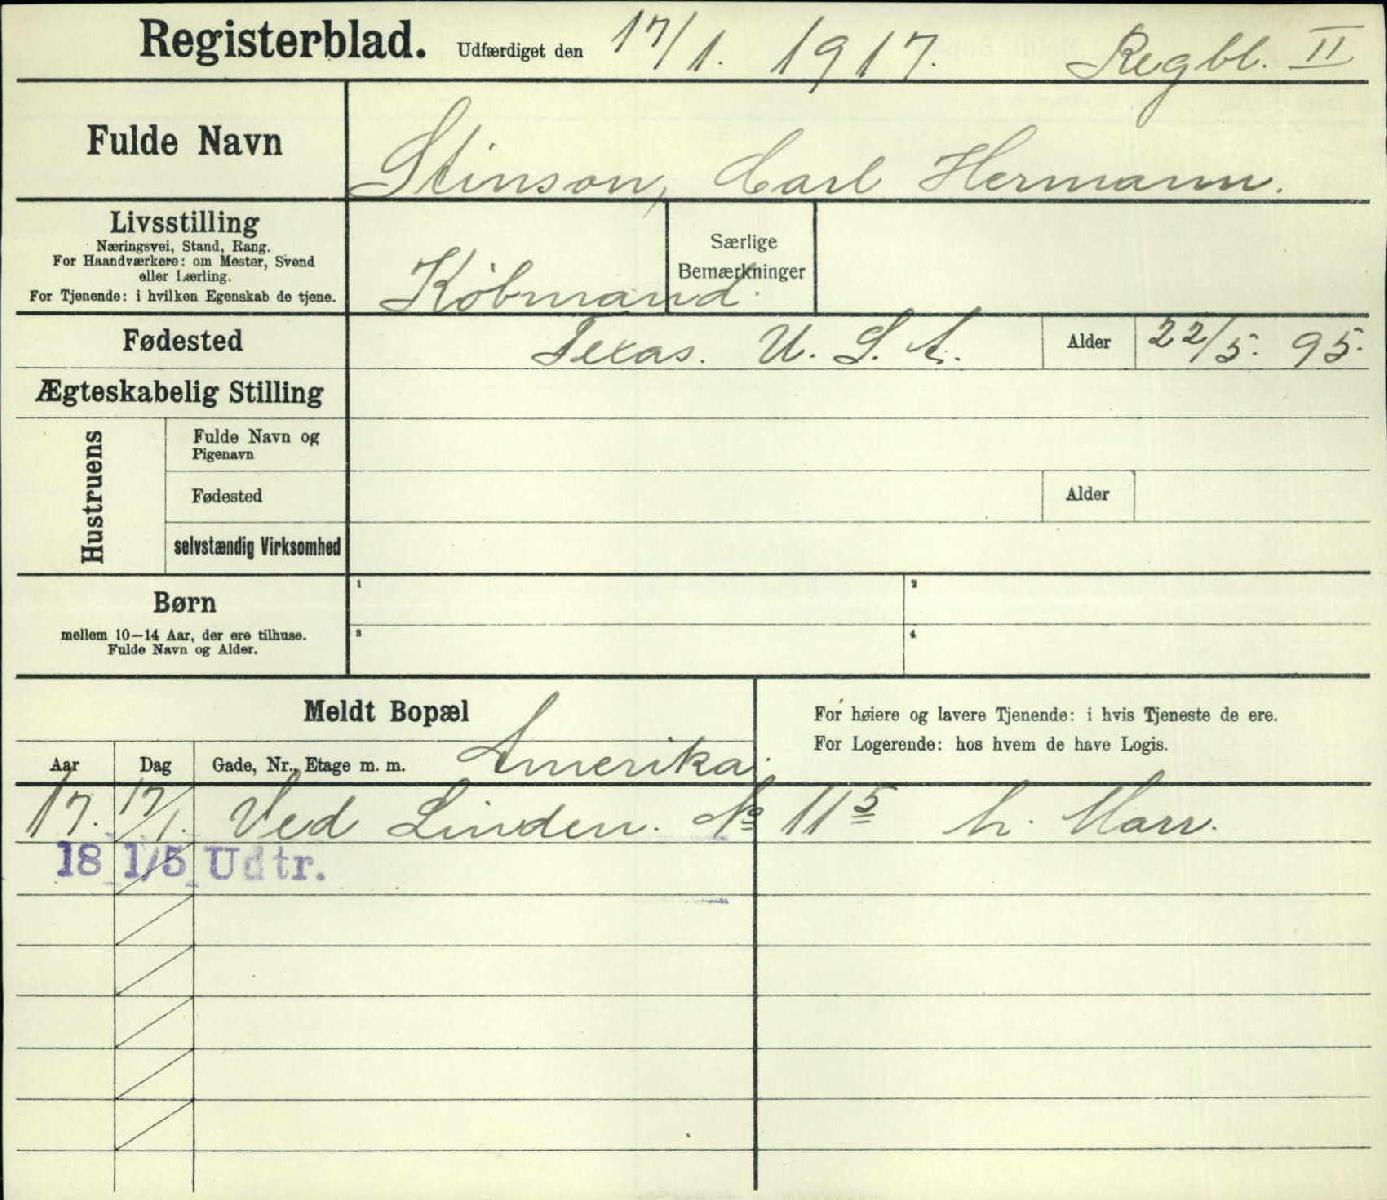 Registerblad. Udfærdiget den 17/1. 1917. Regbl. II
Fulde Navn Stinson, Carl Hermann.
Livsstilling
Næringsvei, Stand, Rang.
For Haandværkere: om Mester, Svend
eller Lærling.
For Tjenende: i hvilken Egenskab de tjene.
Købmand.
Særlige
Bemærkninger
Fødested Texas. U. S. A. Alder 22/5. 95.
Ægteskabelig Stilling
Hustruens
Fulde Navn og
Pigenavn
Fødested Alder
selvstændig Virksomhed
Børn
mellem 10—14 Aar, der ere tilhuse.
Fulde Navn og Alder.
1 2
3 4
Meldt Bopæl
For høiere og lavere Tjenende: i hvis Tjeneste de ere.
For Logerende: hos hvem de have Logis.
Aar Dag Gade, Nr., Etage m. m. Amerika.
17. 17/1. Ved Linden. No 11 5 h. Marr.
18 1/5 Udtr.